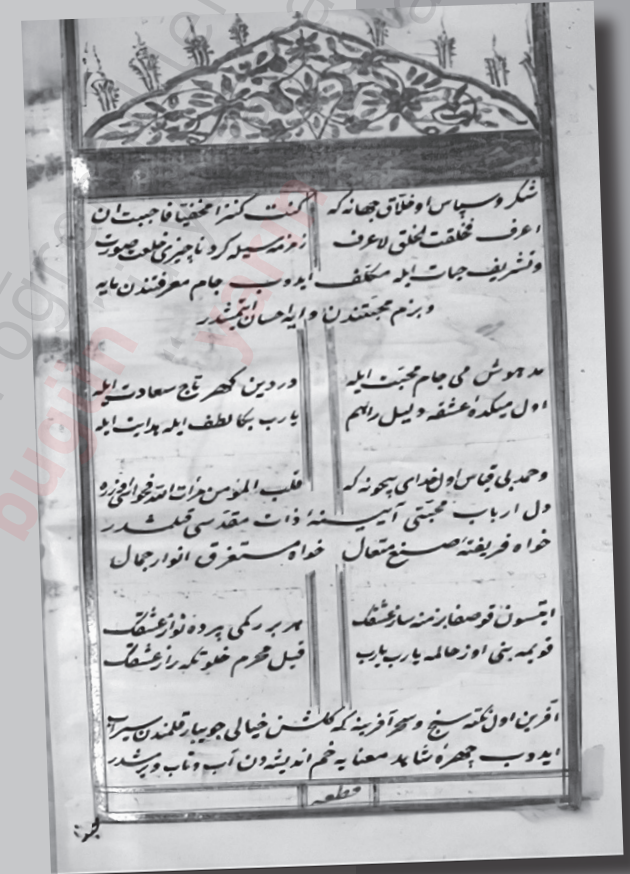 شکر و سپاس او خلاق جهانه که کنت کنزا مخفیا فاحببت ان
اعرف فخلقت الخلق لاعرف زمزمه سیله کرد ناچیزی خلعت صورت
و تشریف حیات ایله مکلف ایدوب جام معرفتندن مایه
و بزم محبتندن وایه احسان ایتمشدر
مدهوش می جام محبت ایله در دین کهر تاج سعادت ایله
اول میکدۀ عشقه دلیل راهم یا رب بکا لطف ایله هدایت ایله
و حمد بی قیاس اول خدای بیچونه که قلب المؤمن مرآت الله فحواسی اوزره
دل ارباب محبتی آیینۀ ذات مقدسی قلمشدر
خواه فریفتۀ صنع متعال خواه مستغرق انوار جمال
ایتسون قو صفا بزمنه ساز عشقک هر بر رکمی پرده نواز عشقک
قویمه بنی اوز حالمه یا رب یا رب قیل محرم خلوتکه راز عشقک
آفرین اول نکته سنج و سحر آفرینه که کلشن خیالی جویبار قلمندن سیراب
ایدوب چهرۀ شاهد معنایه خم اندیشه دن آب و تاب ویرمشدر
قطعه